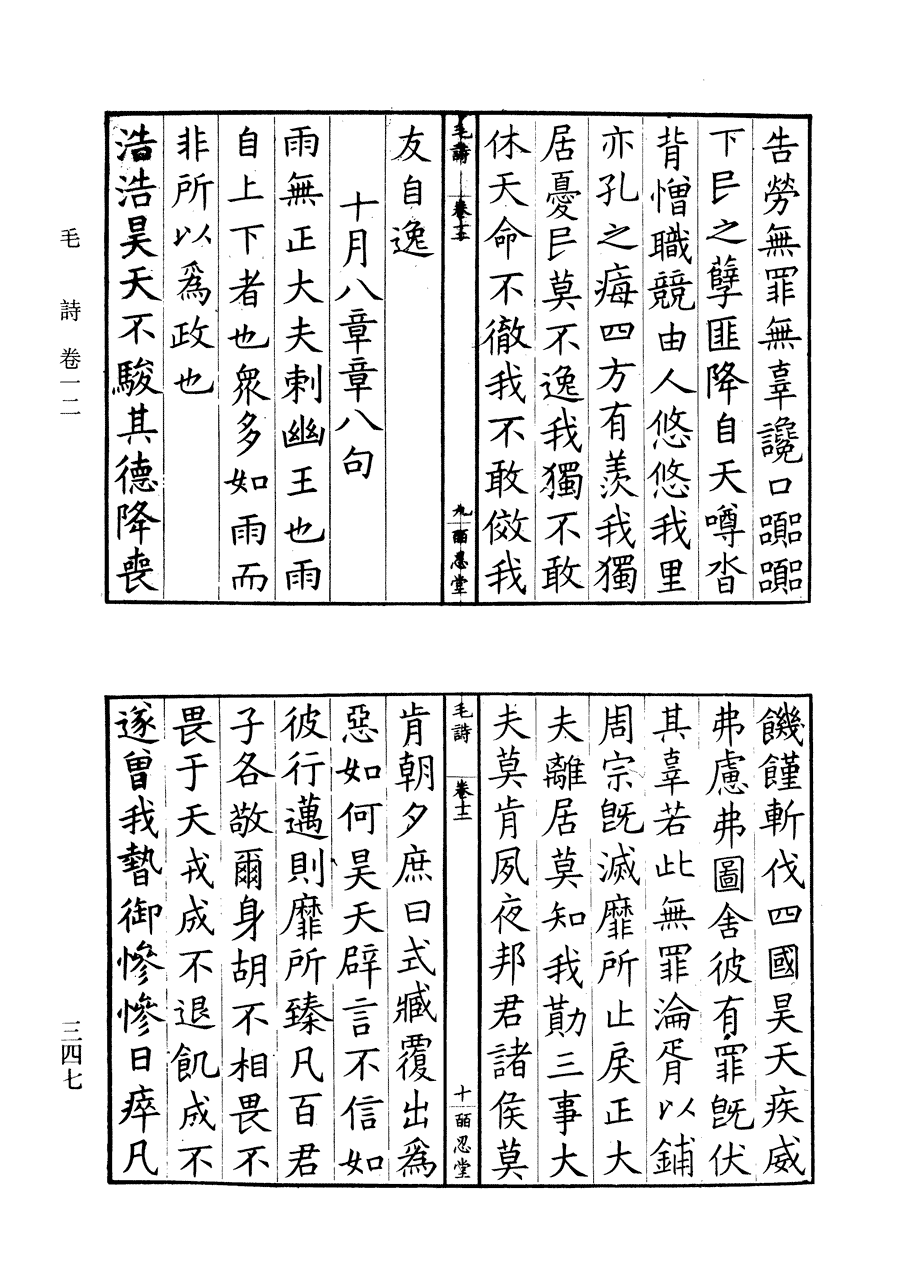 告勞無罪無辜讒口嚻嚻
下民之孽匪降自天噂沓
背憎職競由人悠悠我里
亦孔之痗四方有羨我獨
居憂民莫不逸我獨不敢
休天命不徹我不敢傚我
毛詩 卷十二 九 皕忍堂
友自逸
十月八章章八句
雨無正大夫刺幽王也雨
自上下者也衆多如雨而
非所以爲政也
浩浩昊天不駿其德降喪
饑饉斬伐四國昊天疾威
弗慮弗圖舍彼有罪旣伏
其辜若此無罪淪胥以鋪
周宗旣滅靡所止戾正大
夫離居莫知我勩三事大
夫莫肯夙夜邦君諸侯莫
毛詩 卷十二 十 皕忍堂
肯朝夕庶曰式臧覆出爲
惡如何昊天辟言不信如
彼行邁則靡所臻凡百君
子各敬爾身胡不相畏不
畏于天戎成不退飢成不
遂曾我暬御慘慘日瘁凡
毛詩 卷一二
三四七